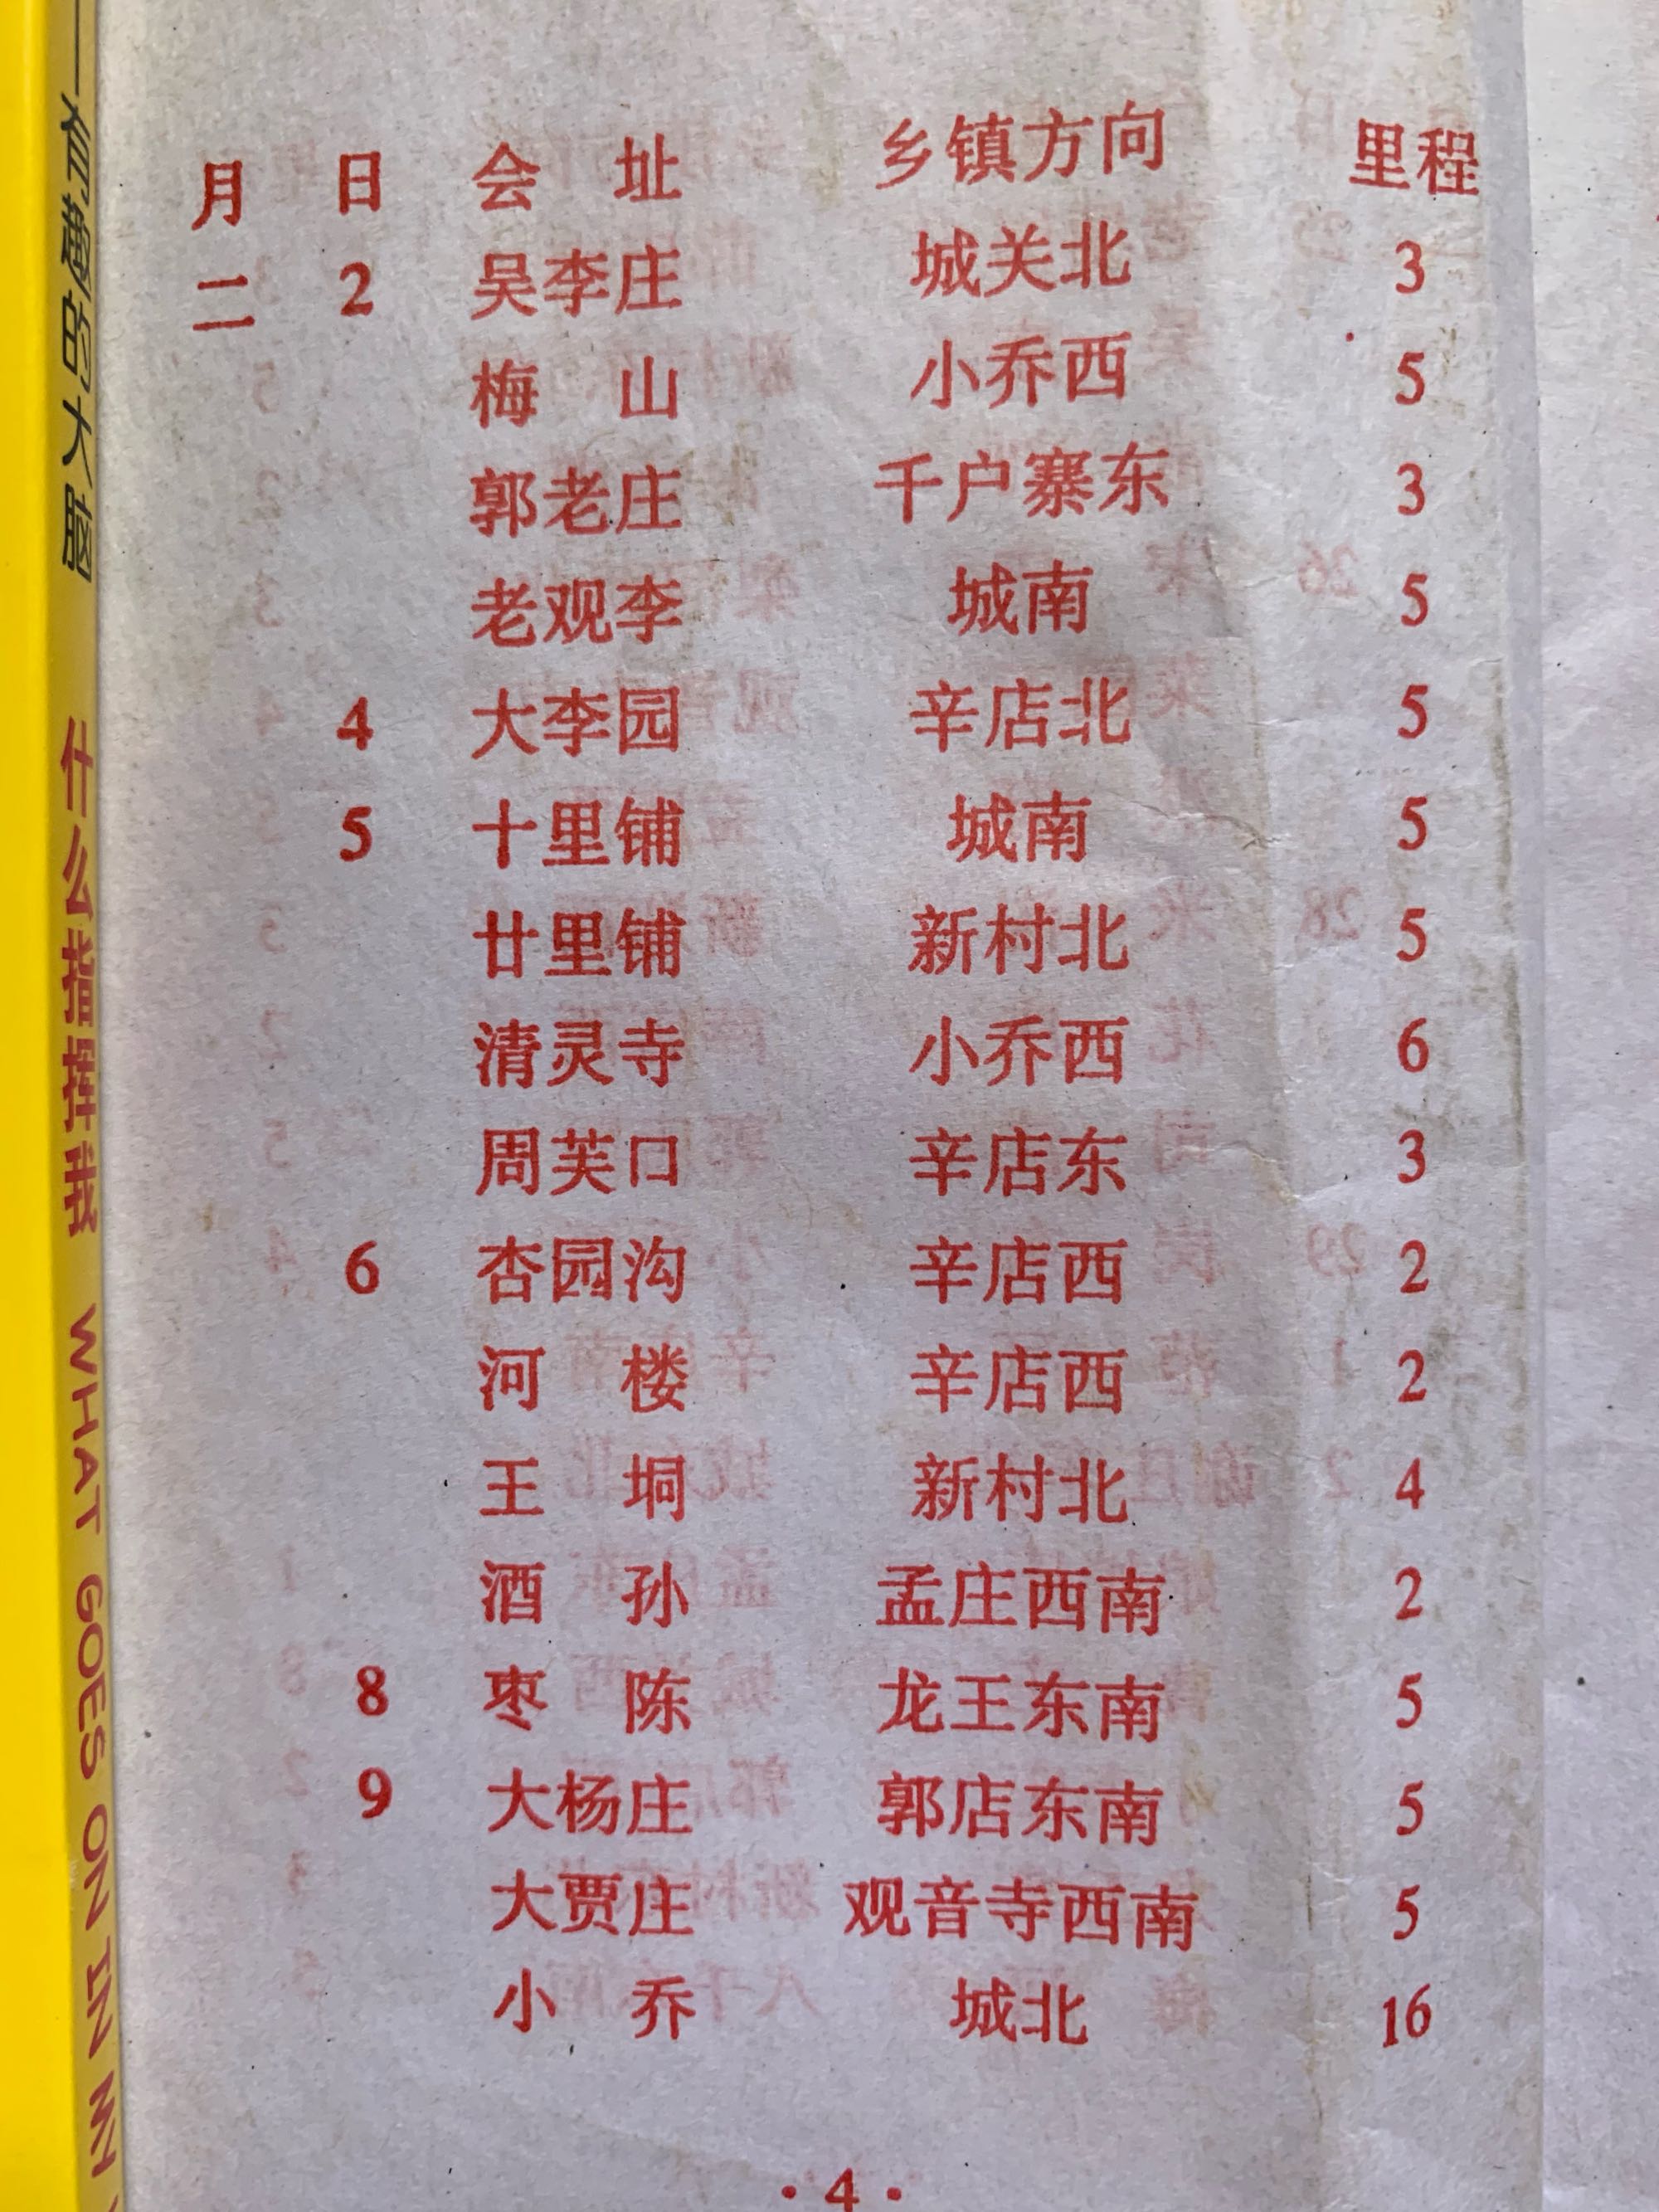 有趣的大脑 什么指挥我 WHAT GOES ON IN MY
月 日 会 址 乡镇方向 里程
二 2 吴李庄 城关北 3
梅 山 小乔西 5
郭老庄 千户寨东 3
老观李 城南 5
4 大李园 辛店北 5
5 十里铺 城南 5
廿里铺 新村北 5
清灵寺 小乔西 6
周芙口 辛店东 3
6 杏园沟 辛店西 2
河 楼 辛店西 2
王 垌 新村北 4
酒 孙 孟庄西南 2
8 枣 陈 龙王东南 5
9 大杨庄 郭店东南 5
大贾庄 观音寺西南 5
小 乔 城北 16
·4·